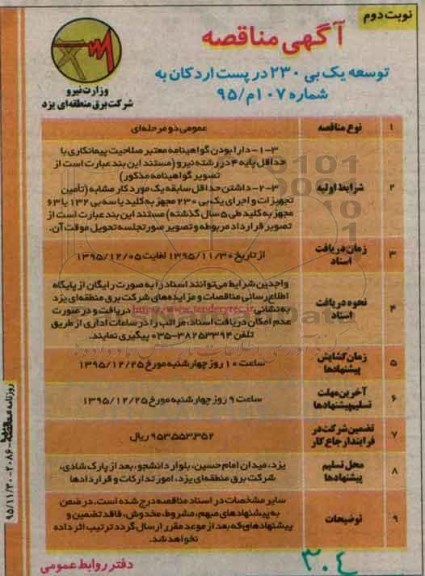 نوبت دوم
آگهی مناقصه
توسعه یک بی ۲۳۰ در پست اردکان به
شماره ۱۰۷م/۹۵
وزارت نیرو
شرکت برق منطقه‌ای یزد
۱ نوع مناقصه عمومی دو مرحله‌ای
۲ شرایط اولیه
۳-۱- دارا بودن گواهینامه معتبر صلاحیت پیمانکاری با
حداقل پایه ۴ در رشته نیرو (مستند این بند عبارت است از
تصویر گواهینامه مذکور)
۳-۲- داشتن حداقل سابقه یک مورد کار مشابه (تأمین
تجهیزات و اجرای یک بی ۲۳۰ مجهز به کلید یا سه بی ۱۳۲ یا ۶۳
مجهز به کلید طی ۵ سال گذشته) مستند این بند عبارت است از
تصویر قرارداد مربوطه و تصویر صورتجلسه تحویل موقت آن.
۳ زمان دریافت اسناد از تاریخ ۱۳۹۵/۱۱/۳۰ لغایت ۱۳۹۵/۱۲/۰۵
۴ نحوه دریافت اسناد
واجدین شرایط می‌توانند اسناد را به صورت رایگان از پایگاه
اطلاع رسانی مناقصات و مزایده‌های شرکت برق منطقه‌ای یزد
به نشانی دریافت و در صورت
عدم امکان دریافت اسناد، مراتب را در ساعات اداری از طریق
تلفن ۳۸۲۵۳۳۹۴-۰۳۵ پیگیری نمایند.
۵ زمان گشایش پیشنهادها ساعت ۱۰ روز چهارشنبه مورخ ۱۳۹۵/۱۲/۲۵
۶ آخرین مهلت تسلیم پیشنهادها ساعت ۹ روز چهارشنبه مورخ ۱۳۹۵/۱۲/۲۵
۷ تضمین شرکت در فرایند ارجاع کار ۹۵۳,۵۵۳,۳۵۲ ریال
۸ محل تسلیم پیشنهادها
یزد، میدان امام حسین، بلوار دانشجو، بعد از پارک شادی،
شرکت برق منطقه‌ای یزد، امور تدارکات و قراردادها
۹ توضیحات
سایر مشخصات در اسناد مناقصه درج شده است. در ضمن
به پیشنهادهای مبهم، مشروط، مخدوش، فاقد تضمین و
پیشنهادهای که بعد از موعد مقرر ارسال گردد ترتیب اثر داده
نخواهد شد.
دفتر روابط عمومی
۳۰۴
روزنامه مناقصه - ۲۰۸۶ - ۹۵/۱۱/۳۰